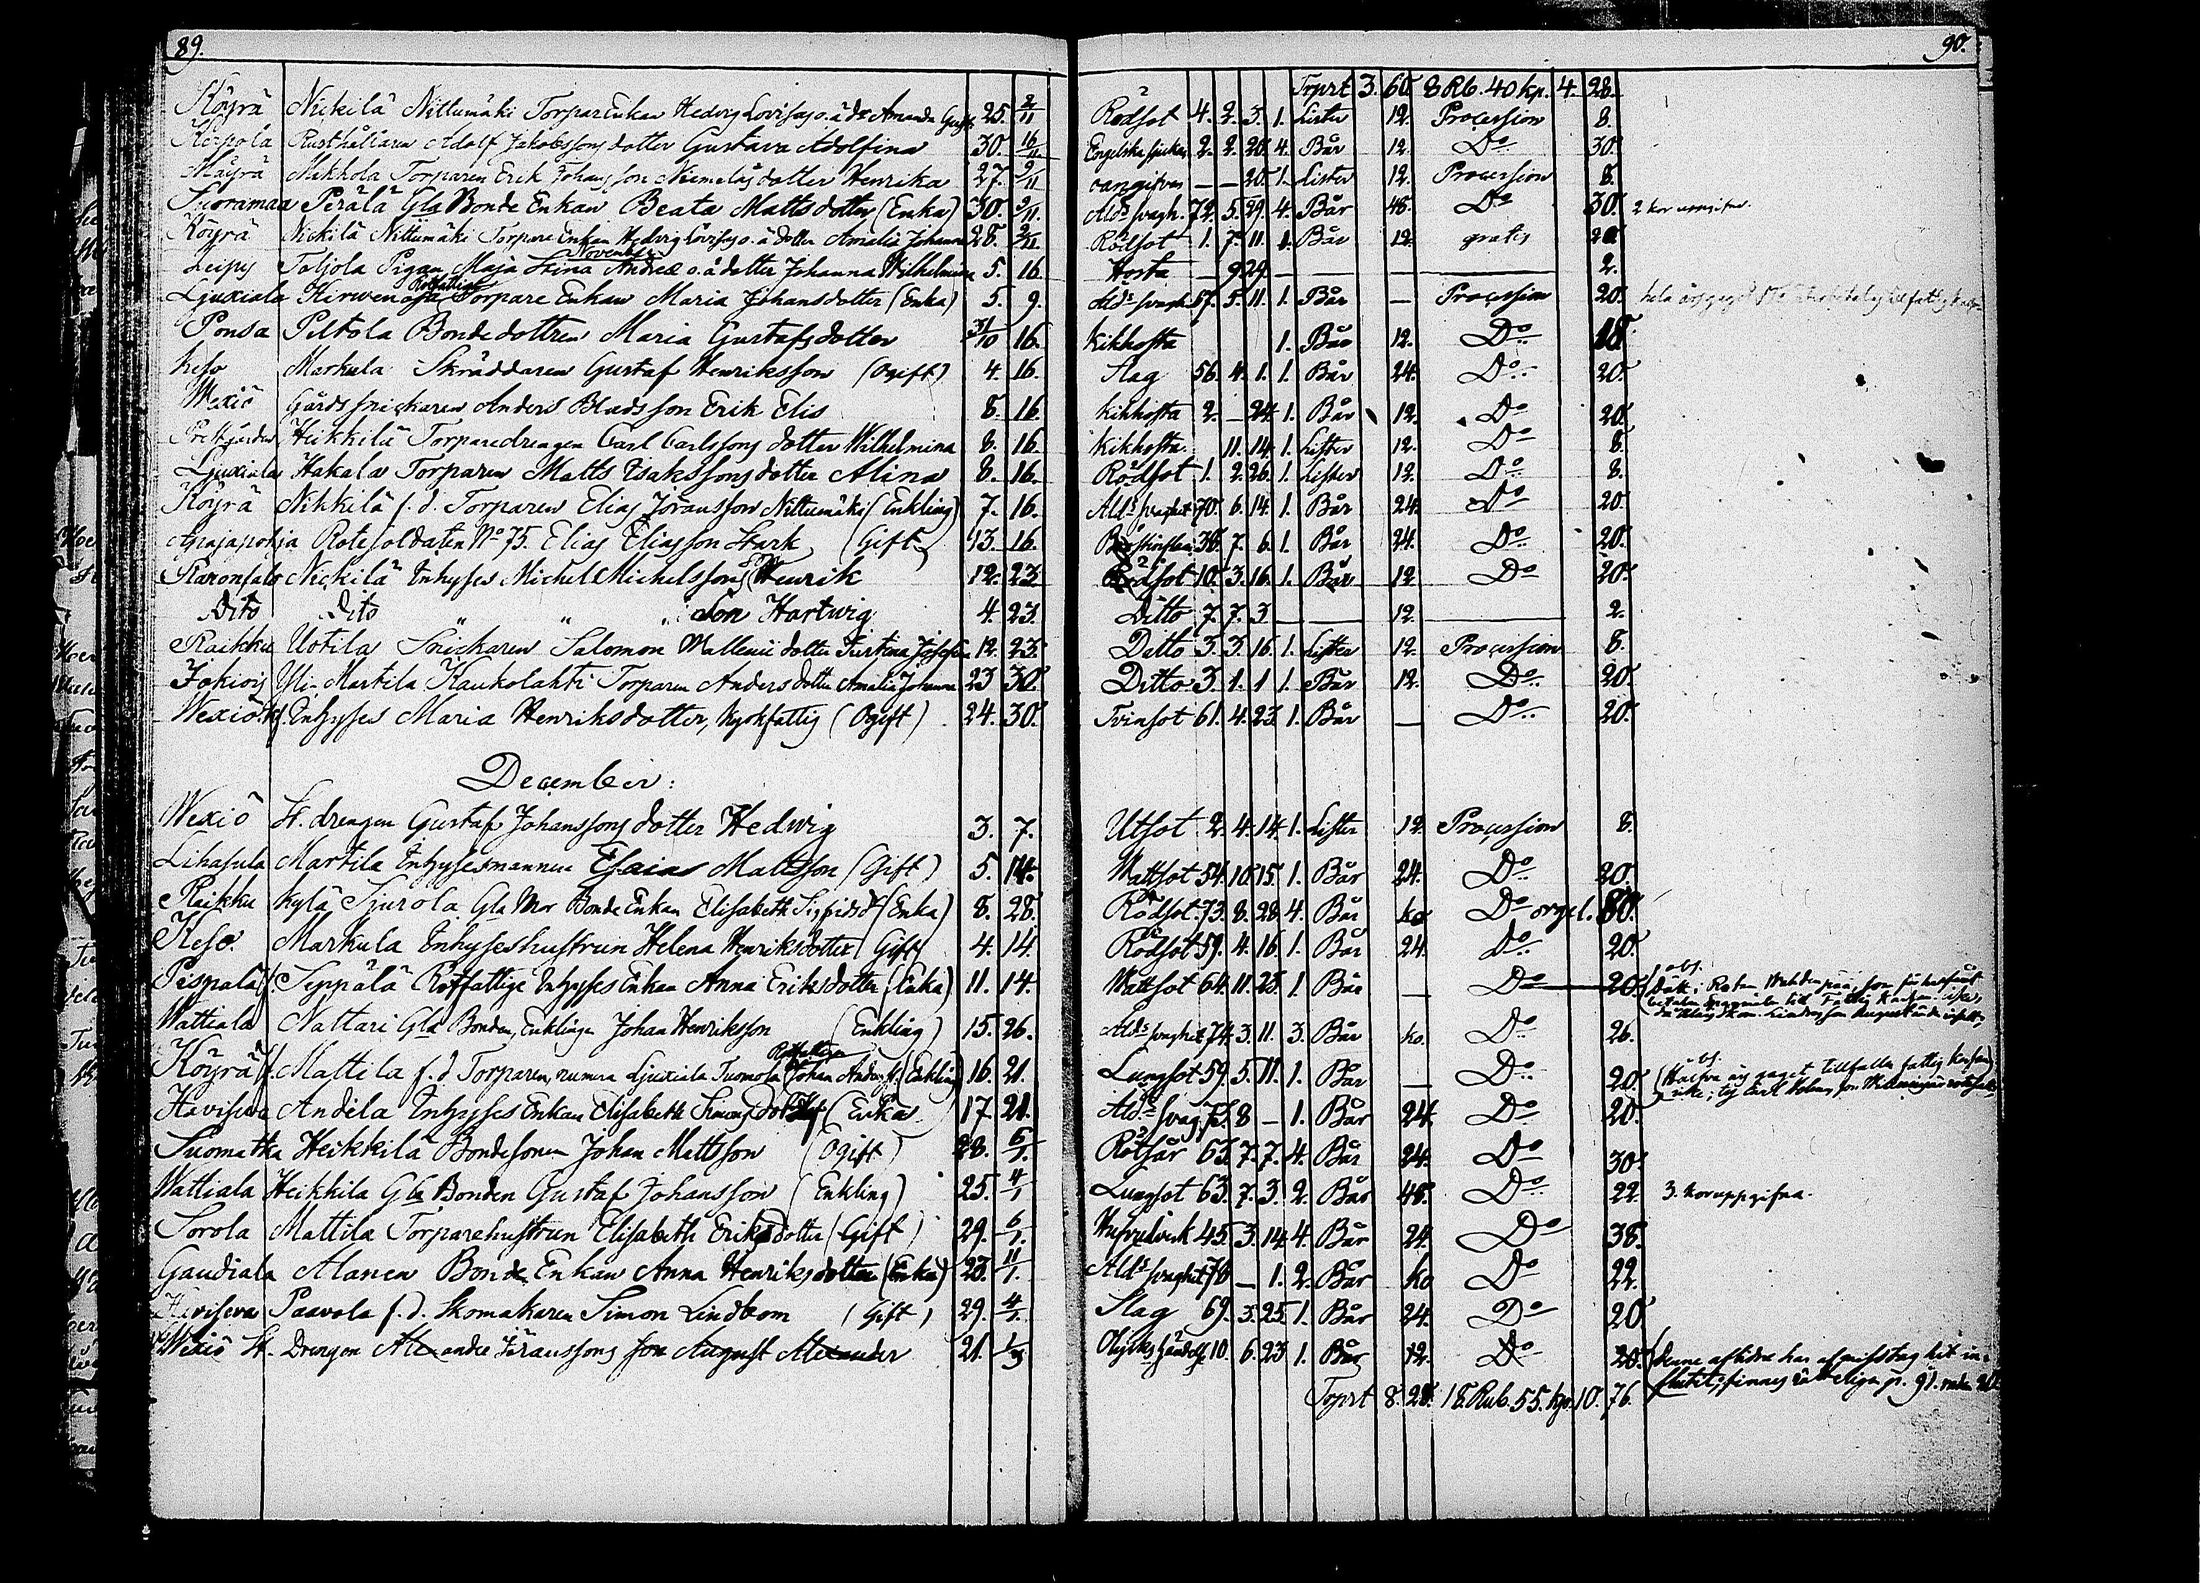 89.
Köyrä Nickilä Nittumäki Torpar Enkan Hedvig Lovisas o. ä. dr Amanda 25. 2/11
Rusthållaren Adolf Jakobssons dotter Gustava Adolfina 30. 16/11
Mäyrä Mikkola Torparen Erik Johansson Niemeläs dotter Henrika 27. 9/11
Suoramaa Perälä Gla Bonde Enkan Beata Mattsdotter (Enka) 30. 9/11.
Köyrä Nickilä Nittumäki Torpare Enkan Hedvig Lovisas o. ä dotter Amalia Johanna 28. 2/11
November
Leipys Toljola Pigan Maja Stina Andreæ o. ä dotter Johanna Wilhelmina 5. 16.
Rotfattiga
Ljuxiala Kirwenoja Torpare Enkan Maria Johansdotter (Enka) 5. 9.
Ponsa Peltola Bondedottren Maria Gustafsdotter 31/10 16.
Keso Markula Skräddaren Gustaf Henriksson (Ogift) 4. 16.
Wexiö Gårdssnickaren Anders son Erik Elis 8. 16.
Heikkilä Torparedrengen Carl Carlssons dotter Wilhelmina 8. 16.
Ljuxiala Hakala Torparen Matts Isakssons dotter Alina 8. 16.
Köyrä Nikkilä f. d. Torparen Elias Jöransson Nittumäki (Enkling) 7. 16.
Rotesoldaten No 75. Elias Eliasson Stark (Gift) 13. 16.
Nickilä Inhyses Michel Michelssons Henrik 12. 23
Dito Dito " " Son Hartwig 4. 23.
Raikku Uotila Snickaren Salomon Wallenii dotter Josefina 12. 23.
Jokiois Yli-Marttila Kaukolahti Torparen Anders dotter Amalia Johanna 23 30.
Wexiö Inhyses Maria Henriksdotter, Kyrkfattig (Ogift) 24. 30.
December:
Wexiö St. drengen Gustaf Johanssons dotter Hedwig 3. 7.
Lihasula Martila Inhysesmannen Esaias Mattsson (Gift) 5. 14.
Raikku Kylä Sjurola Gla Mor Bonde Enkan Elisabeth Sigfrids dr (Enka) 8. 28.
Keso. Markula Inhyseshustrun Helena Henriksdotter (Gift) 4. 14.
Pispala Seppälä Rotfattige Inhyses Enkan Anna Eriksdotter (Enka) 11. 14.
Wattiala Nattari Gla Bonden, Enklingen Johan Henriksson (Enkling) 15. 26.
Rotfattigen
Köyrä Mattila f. d Torparen, numera Ljuxiala Tuomola Johan Anders s. (Enkling) 16. 21.
Havisevä Andila Inhyses Enkan Elisabeth Simonsdotter (Enka) 17. 21.
Suomatka Heikkilä Bondesonen Johan Mattsson (Ogift) 28. 6/1.
Wattiala Heikkila Gla Bonden Gustaf Johansson (Enkling) 25. 4/1
Sorola Mattila Torparehustrun Elisabeth Eriksdotter (Gift) 29. 6/1.
Gaudiala Alanen Bonde Enkan Anna Henriksdotter (Enka) 23. 11/1.
Havisevä Paavola f. d. Skomakaren Simon Lindbom (Gift) 29. 4/1.
Wexiö St. Drengen Alexander Jöranssons son August Alexander 21. 1/3
90.
Trprt 3. 60. 8 Rb. 40 kp. 4. 28.
Rödsot 4. 2. 3. 1. Lister 12. Procession 8.
Engelska sjukan 2. 2. 20. 4. Bår 12. Do 30.
oangifven — — 20. 1. Lister 12. Procession 8.
Alds svagh. 72. 5. 29. 4. Bår 48. Do 30. 2 kor
Rödsot 1. 7. 11. 1. Bår 12. gratis 20
Hosta — 9 29. — 2.
Alds svaghet 67. 5. 11. 1. Bår — Procession 20.
Kikhosta 1. Bår 12. Do 18.
Slag 56. 4. 1. 1. Bår 24. Do 20.
Kikhosta 2. — 24. 1. Bår 12. Do 20.
Kikhosta. 11. 14. 1. Lister 12. Do 8.
Rödsot 1. 2. 26. 1. Lister 12. Do 8.
Alds svaghet 70. 6. 14. 1. Bår 24. Do 20
36. 7. 6. 1. Bår 24. Do 20.
Rödsot 10. 3. 16. 1. Bår 12 Do 20.
Ditto 7. 7. 3 — 12. — 2.
Ditto 3. 3. 16. 1. Lister 12. Procession 8.
Ditto 3. 1. 1 1. Bår 12. Do 20.
Tvinsot 61. 4. 23. 1. Bår — Do 20.
Utsot 2. 4. 14. 1. Lister 12 Procession 8.
Wattsot 54. 10. 15. 1. Bår 24. Do 20.
Rödsot. 73. 8. 28. 4. Bår ko Do orgel. 80.
Rödsot 59. 4. 16. 1. Bår 24. Do 20.
Wattsot 64. 11. 23. 1. Bår — Do 20.
Alds svaghet 74. 3. 11. 3. Bår ko. Do 26.
Lungsot 59. 5. 11. 1. Bår — Do 20.
Alds svag. 75. 8 — 1. Bår 24. Do 20.
Rötsår 63. 7. 7. 4. Bår 24. Do 30.
Lungsot 63. 7. 3. 2. Bår 48. Do 22 3. kor uppgifna.
45. 3. 14. 4. Bår 24. Do 38.
Alds svaghet 76 — 1. 2. Bår ko Do 22.
Slag 69. 3. 25. 1. Bår 24. Do 20
Olyckshändelse 10. 6. 23 1. Bår 12. Do 20. (denne aflidne har af misstag hit in-
flutit; finnes
Trprt 8. 28. 18. Rub. 55. kp. 10. 76.